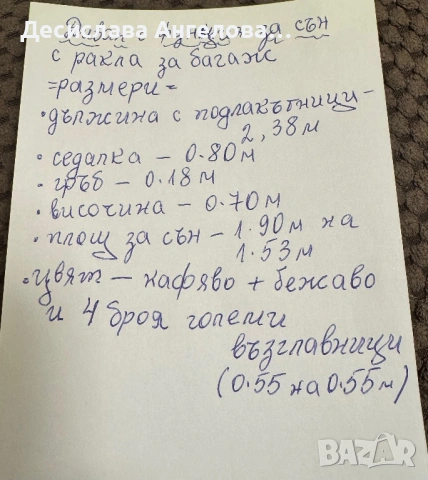 Десислава Ангелова...
за сън
с ракла за багаж
=размери=
• дължина с подлакътници -
2,38м
• седалка - 0.80м
• гръб - 0.18м
• височина - 0.70м
• площ за сън - 1.90м на
1.53м
• цвят - кафяво + бежаво
и 4 броя големи
възглавници
(0.55 на 0.55м)
bazar